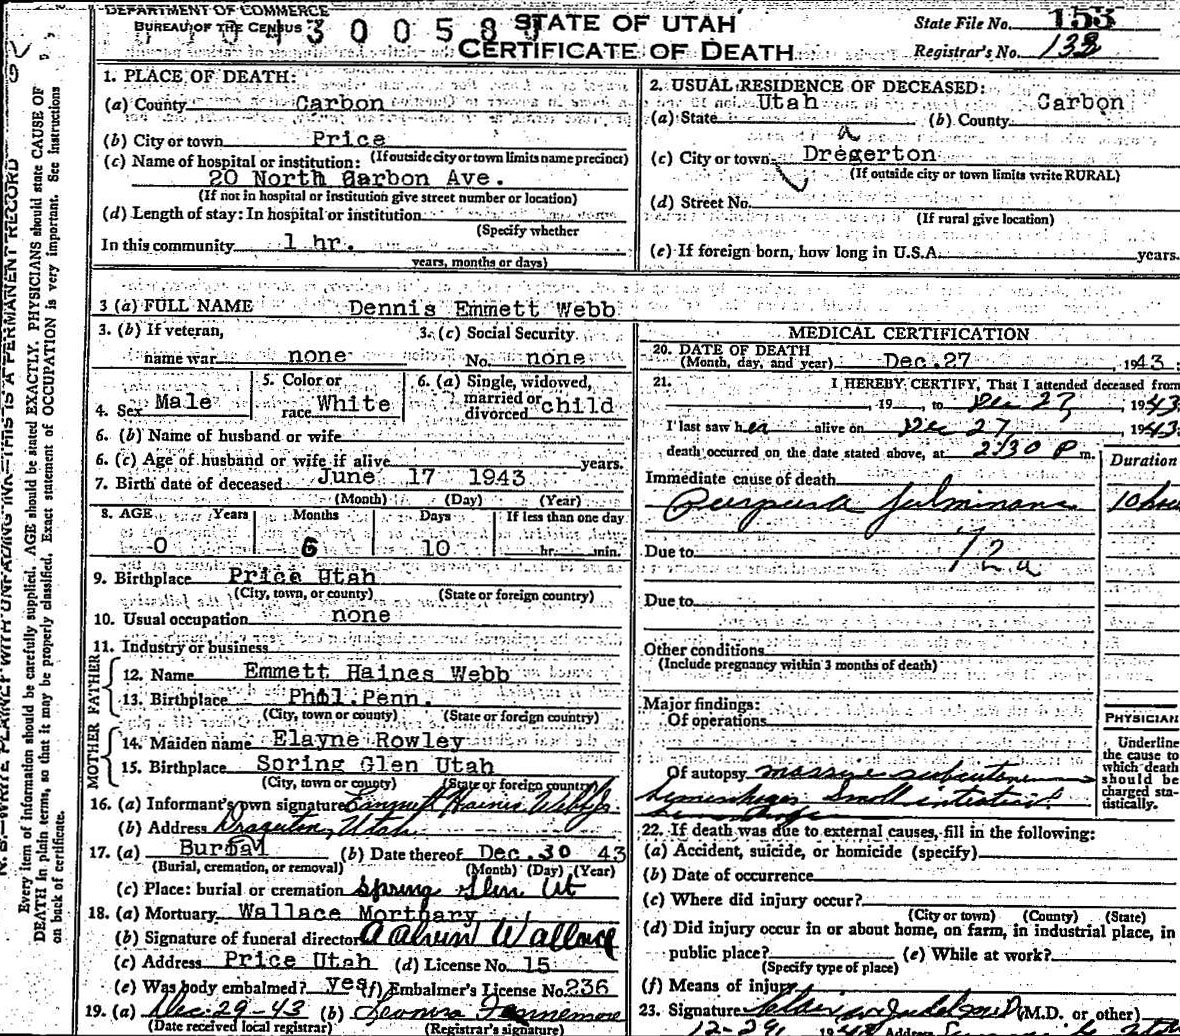 DEPARTMENT OF COMMERCE
BUREAU OF THE CENSUS
STATE OF UTAH
CERTIFICATE OF DEATH
State File No. 153
Registrar's No. 132
N. B.—WRITE PLAINLY WITH UNFADING INK—THIS IS A PERMANENT RECORD
Every item of information should be carefully supplied. AGE should be stated EXACTLY. PHYSICIANS should state CAUSE OF
DEATH in plain terms, so that it may be properly classified. Exact statement of OCCUPATION is very important. See instructions
on back of certificate.
1. PLACE OF DEATH:
(a) County Carbon
(b) City or town Price
(If outside city or town limits name precinct)
(c) Name of hospital or institution:
20 North Carbon Ave.
(If not in hospital or institution give street number or location)
(d) Length of stay: In hospital or institution
(Specify whether
In this community 1 hr.
years, months or days)
2. USUAL RESIDENCE OF DECEASED:
(a) State Utah (b) County Carbon
a
(c) City or town Dregerton
(If outside city or town limits write RURAL)
(d) Street No.
(If rural give location)
(e) If foreign born, how long in U.S.A. years.
3 (a) FULL NAME Dennis Emmett Webb
3. (b) If veteran, name war none
3. (c) Social Security No. none
4. Sex Male
5. Color or race White
6. (a) Single, widowed, married or divorced child
6. (b) Name of husband or wife
6. (c) Age of husband or wife if alive years.
7. Birth date of deceased June 17 1943
(Month) (Day) (Year)
8. AGE Years Months Days If less than one day
0 6 10 hr. min.
9. Birthplace Price Utah
(City, town, or county) (State or foreign country)
10. Usual occupation none
11. Industry or business
FATHER
12. Name Emmett Haines Webb
13. Birthplace Phil. Penn.
(City, town or county) (State or foreign country)
MOTHER
14. Maiden name Elayne Rowley
15. Birthplace Spring Glen Utah
(City, town or county) (State or foreign country)
16. (a) Informant's own signature Emmett Haines Webb Jr.
(b) Address Dragerton, Utah
17. (a) Burial (b) Date thereof Dec. 30 43
(Burial, cremation, or removal) (Month) (Day) (Year)
(c) Place: burial or cremation Spring Glen Ut
18. (a) Mortuary Wallace Mortuary
(b) Signature of funeral director Wallace
(c) Address Price Utah (d) License No. 15
(e) Was body embalmed? yes (f) Embalmer's License No. 236
19. (a) Dec-29-43 (b)
(Date received local registrar) (Registrar's signature)
MEDICAL CERTIFICATION
20. DATE OF DEATH
(Month, day, and year) Dec. 27 1943
21. I HEREBY CERTIFY, That I attended deceased from
, 19 , to Dec 27, 1943
I last saw her alive on Dec 27, 1943
death occurred on the date stated above, at 2:30 P m.
Duration
Immediate cause of death
Purpura fulminans 10 hours
Due to 72a
Due to
Other conditions
(Include pregnancy within 3 months of death)
Major findings:
Of operations
PHYSICIAN
Underline
the cause to
which death
should be
charged sta-
tistically.
Of autopsy massive subcutaneous
hemorrhages Small intestinal
hemorrhage
22. If death was due to external causes, fill in the following:
(a) Accident, suicide, or homicide (specify)
(b) Date of occurrence
(c) Where did injury occur?
(City or town) (County) (State)
(d) Did injury occur in or about home, on farm, in industrial place, in
public place? (e) While at work?
(Specify type of place)
(f) Means of injury
23. Signature (M.D. or other)
12-29 Address